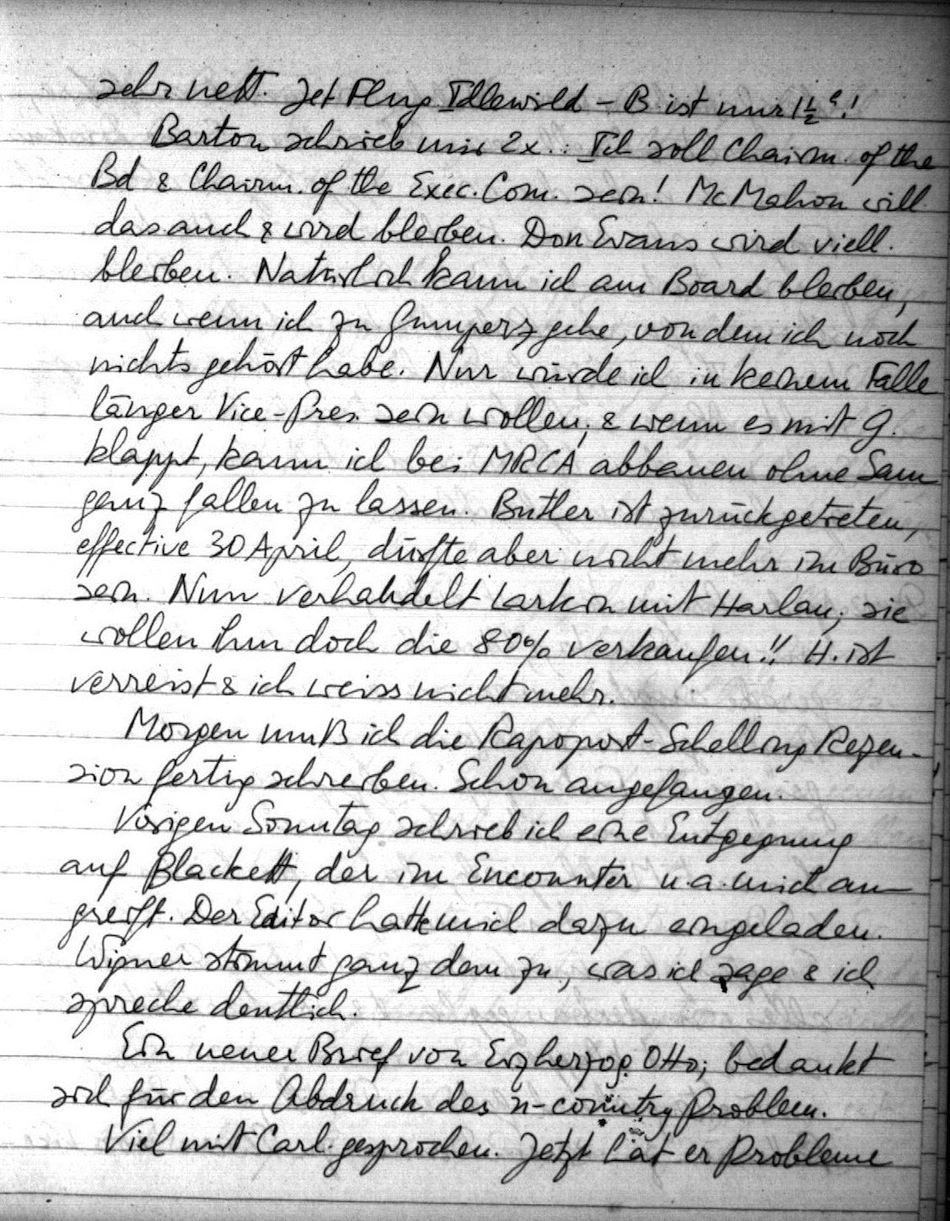 sehr nett. Jet Flug Idlewild – B ist nur 1½ !
Barton schrieb mir 2x.: Ich soll Chairm. of the
Bd & Chairm. of the Exec. Com. sein! McMahon will
das auch & wird bleiben. Don Evans wird viell.
bleiben. Natürlich kann ich am Board bleiben,
auch wenn ich zu Gumperz gehe, von dem ich noch
nichts gehört habe. Nur würde ich in keinem Falle
länger Vice-Pres. sein wollen, & wenn es mit G.
klappt, kann ich bei MRCA abbauen ohne Sam
ganz fallen zu lassen. Butler ist zurückgetreten,
effective 30 April, dürfte aber nicht mehr im Büro
sein. Nun verhandelt Larkin mit Harlan; sie
wollen ihm doch die 80% verkaufen!! H. ist
verreist & ich weiss nicht mehr.
Morgen muß ich die Rapoport-Schelling Rezen-
sion fertig schreiben. Schon angefangen.
Vorigen Sonntag schrieb ich eine Entgegnung
auf Blackett, der im Encounter u.a. mich an-
greift. Der Editor hatte mich dazu eingeladen.
Wigner stimmt ganz dem zu, was ich sage & ich
spreche deutlich.
Ein neuer Brief von Erzherzog Otto; bedankt
sich für den Abdruck des n-country Problem.
Viel mit Carl gesprochen. Jetzt hat er Probleme